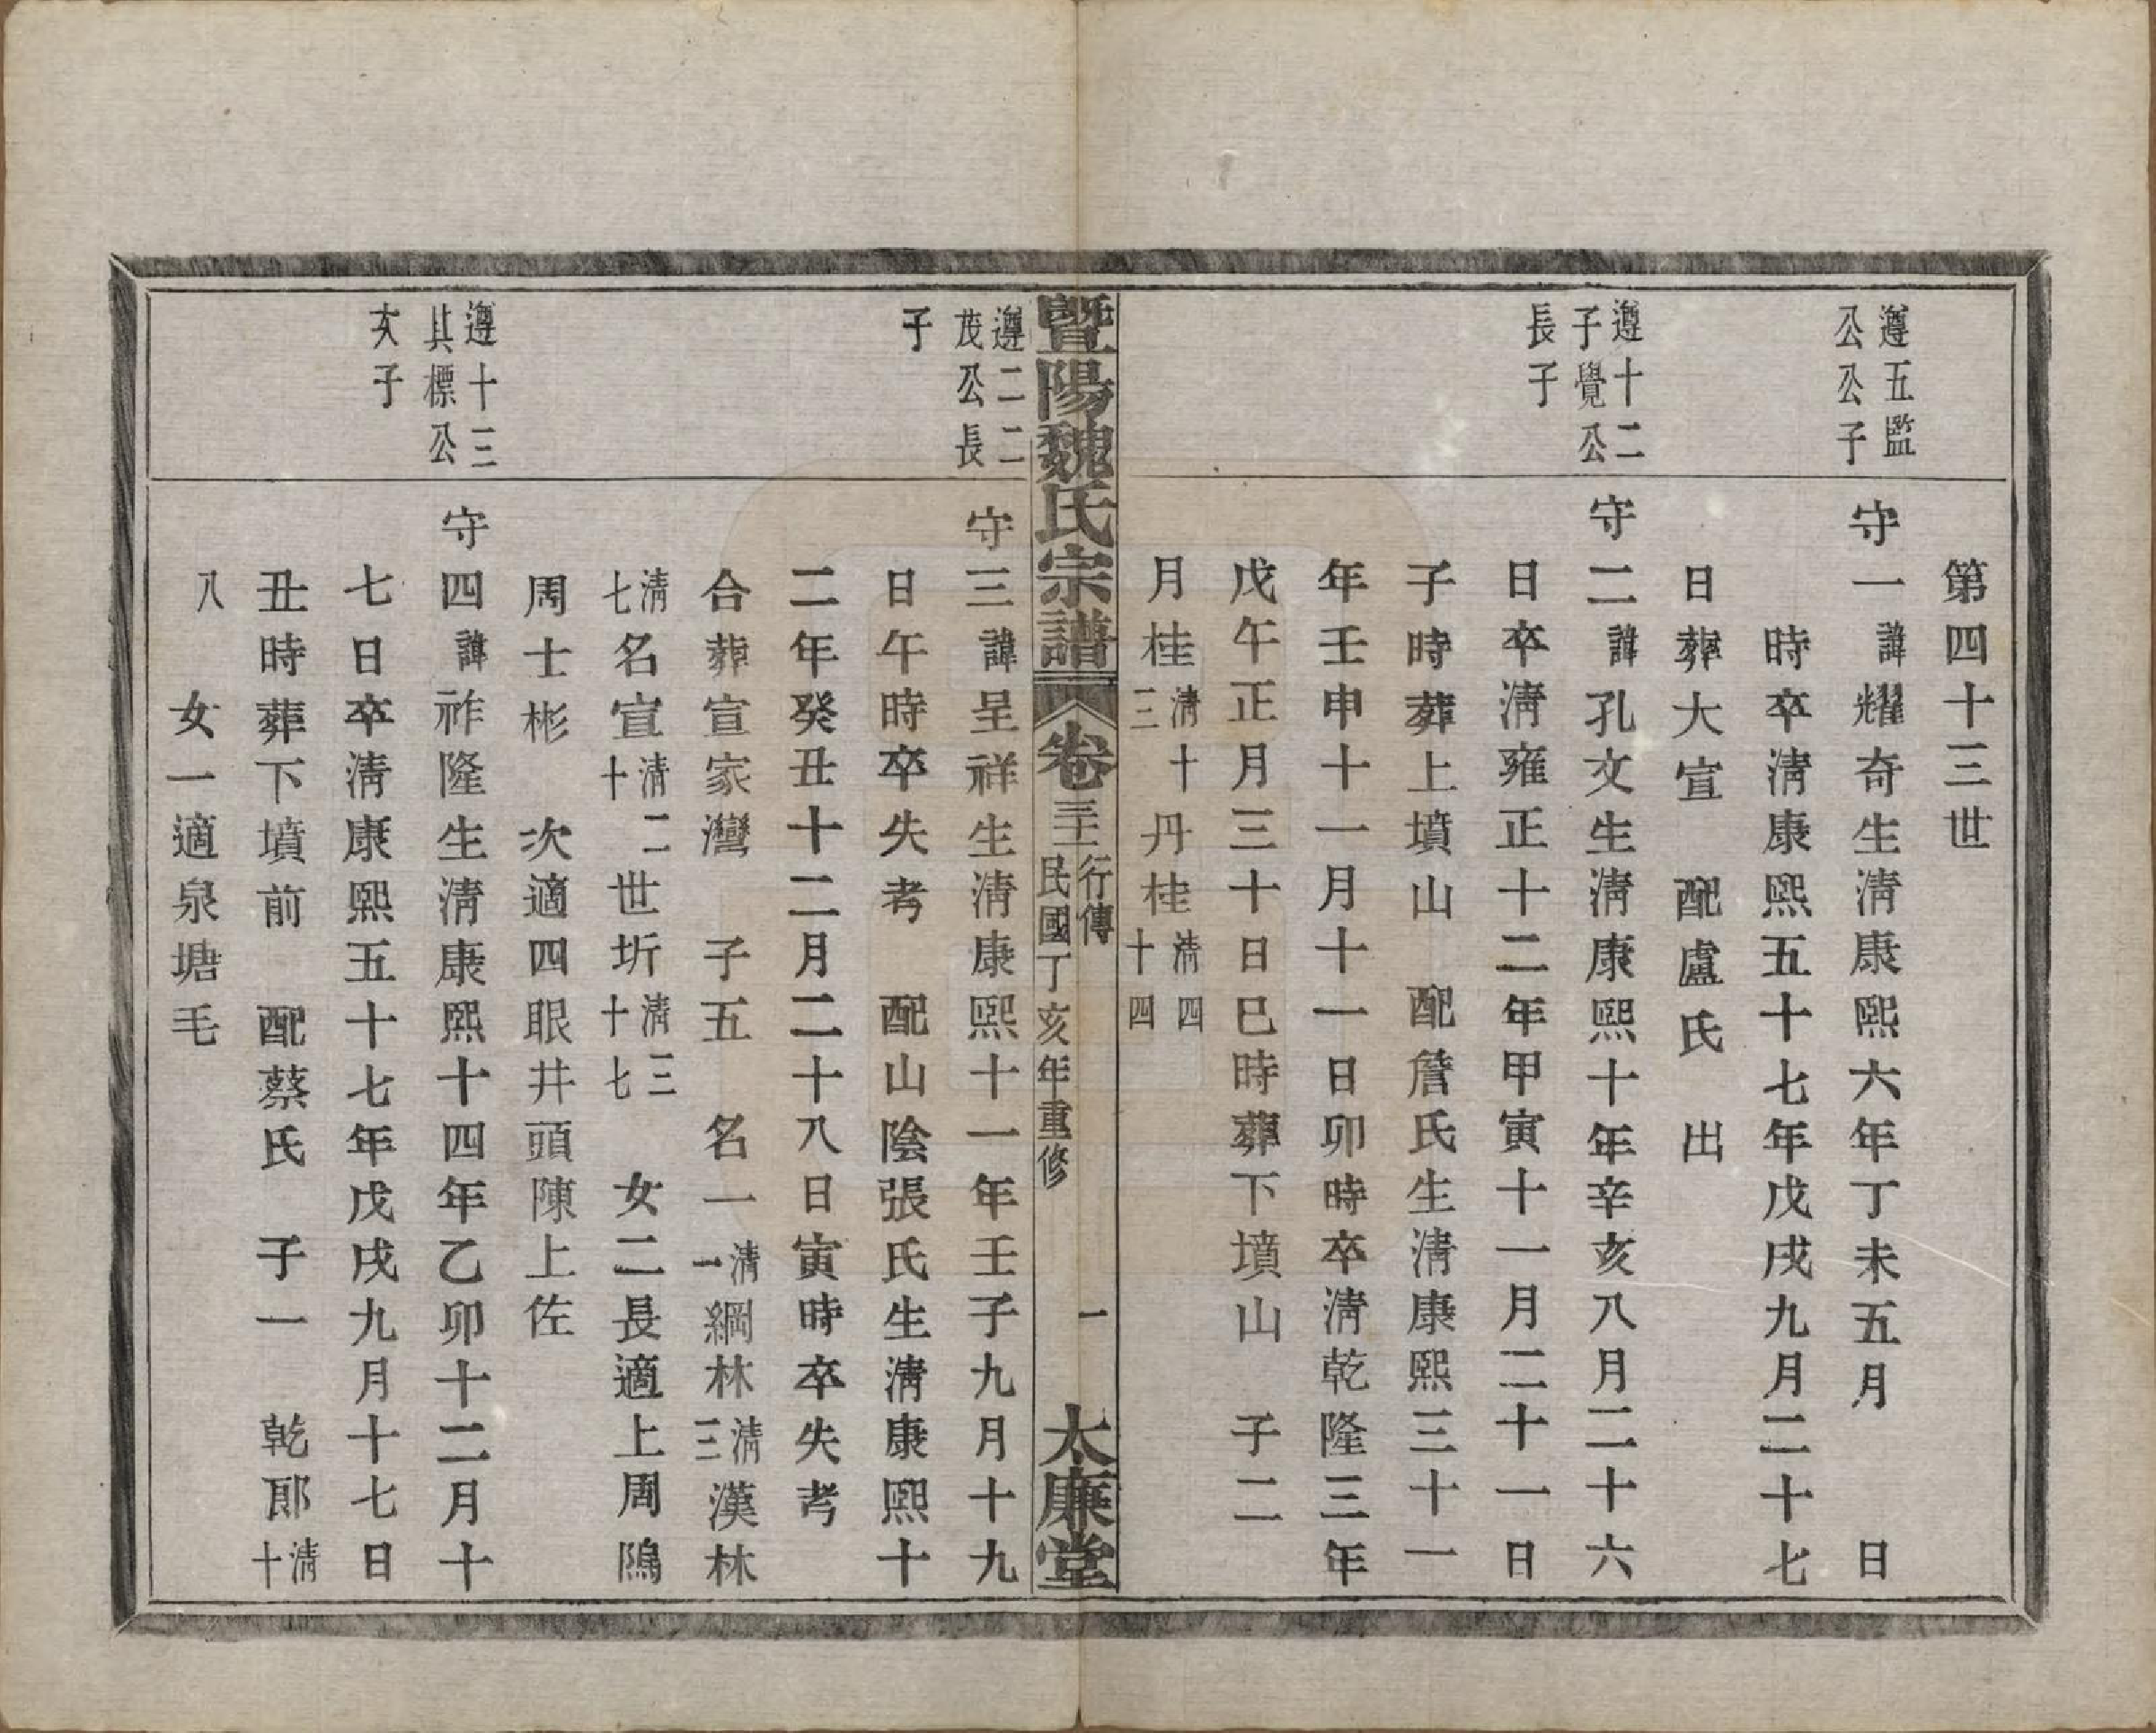 第四十三世
遵五監
公公子
守一諱耀奇生淸康熙六年丁未五月　日
時卒淸康熙五十七年戊戌九月二十七
日葬大宣　配盧氏　出
遵十二
子覺公
長子
守二諱孔文生淸康熙十年辛亥八月二十六
日卒淸雍正十二年甲寅十一月二十一日
子時葬上墳山　配詹氏生淸康熙三十一
年壬申十一月十一日卯時卒淸乾隆三年
戊午正月三十日巳時葬下墳山　子二
月桂淸十三丹桂淸四十四
暨陽魏氏宗譜　卷三十一　行傳　民國丁亥年重修　一　太廉堂
遵二二
茂公長
子
守三諱呈祥生淸康熙十一年壬子九月十九
日午時卒失考　配山陰張氏生淸康熙十
二年癸丑十二月二十八日寅時卒失考
合葬宣家灣　子五　名一淸一綱林淸三漢林
淸七名宣淸二十世圻淸三十七　女二長適上周隖
周士彬　次適四眼井頭陳上佐
遵十三
其標公
次子
守四諱祚隆生淸康熙十四年乙卯十二月十
七日卒淸康熙五十七年戊戌九月十七日
丑時葬下墳前　配蔡氏　子一　乾郎淸十
八　女一適泉塘毛